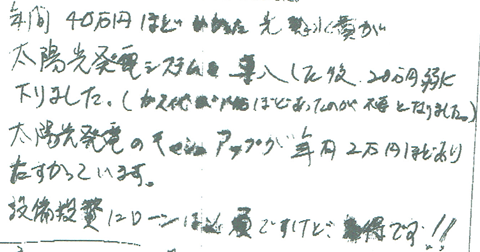 年間 40万円ほどかかった光熱水費が
太陽光発電システムを導入した後、20万円弱に
下りました。(ガス代が ほどあったのが不要となりました。)
太陽光発電の アップが年間2万円ほどあり
たすかっています。
設備投費にローンは必要ですけど、お得です!!